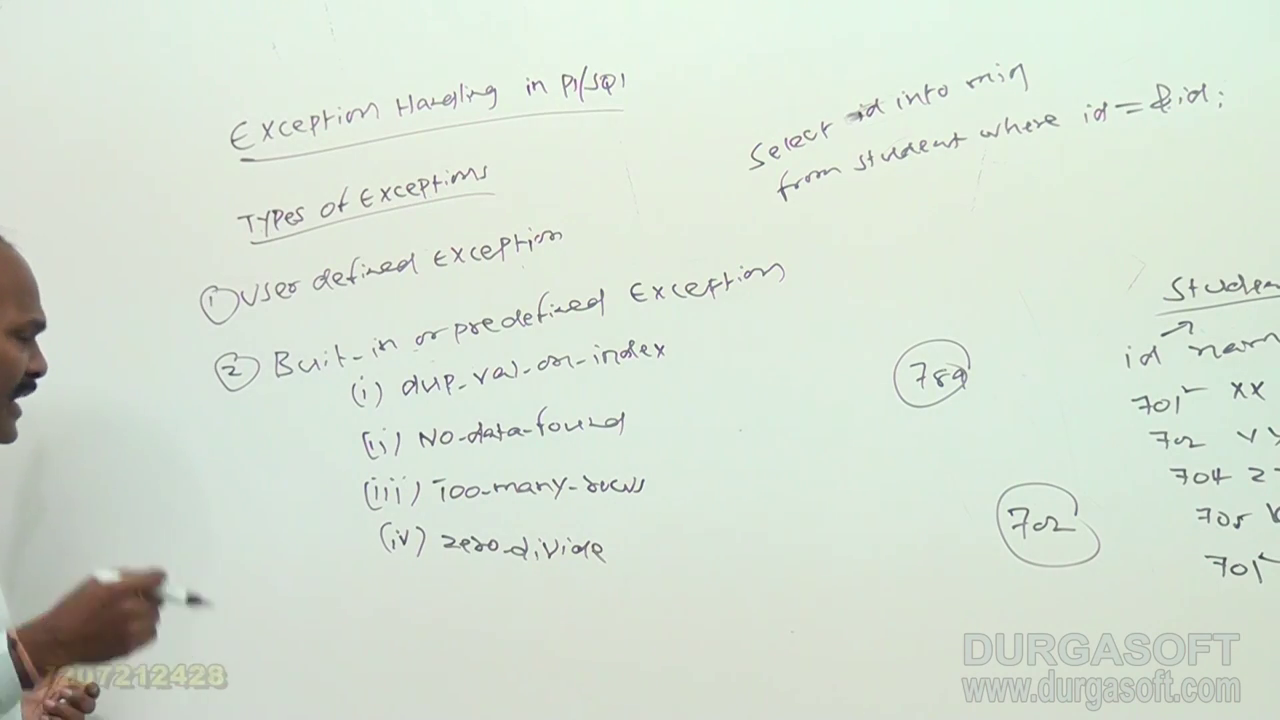 Exception Handling in Pl/SQl
Types of Exceptions
① User defined Exception
② Buit-in or predefined Exception
(i) dup_val_on_index
(ii) No-data-found
(iii) Too-many-rows
(iv) zero-divide
Select id into
from student where id = &id;
789
702
Studen
id nam
701 XX
702 YY
704 Z
705
701
7207212428
DURGASOFT
www.durgasoft.com